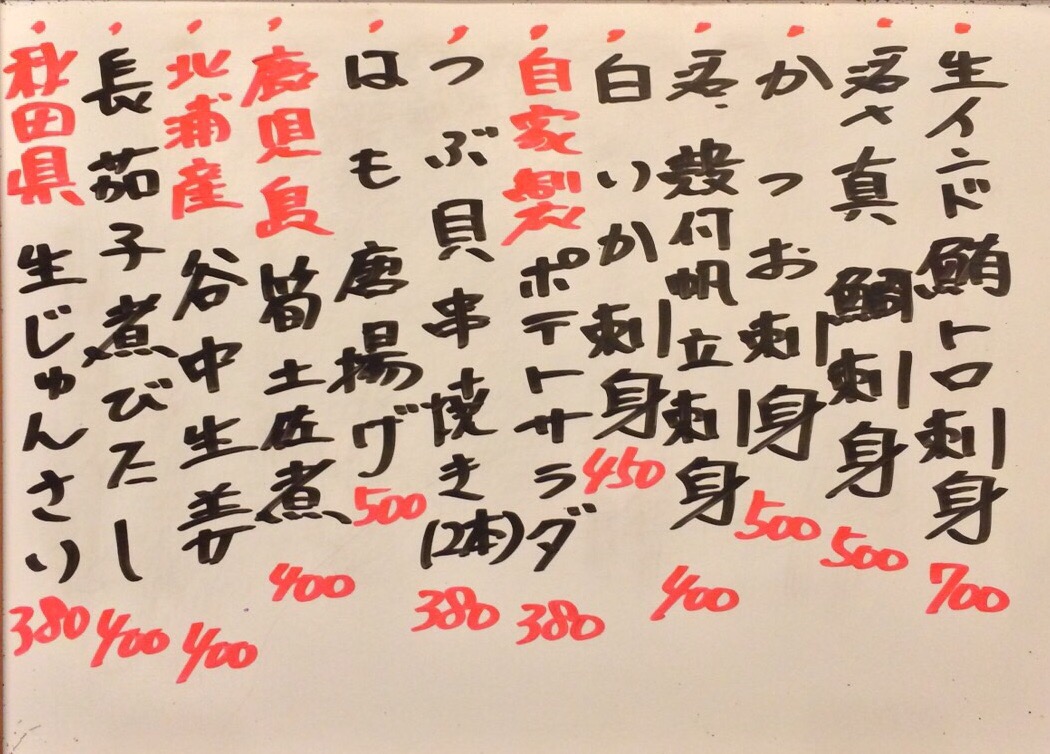 ・生インド鮪トロ刺身 700
・活〆真鯛刺身 500
・かつお刺身 500
・活殻付帆立刺身 400
・白いか刺身 450
・自家製ポテトサラダ 380
・つぶ貝串焼き(2本) 380
・はも唐揚げ 500
・鹿児島筍土佐煮 400
・北浦産谷中生姜 400
・長茄子煮びたし 400
・秋田県生じゅんさい 380